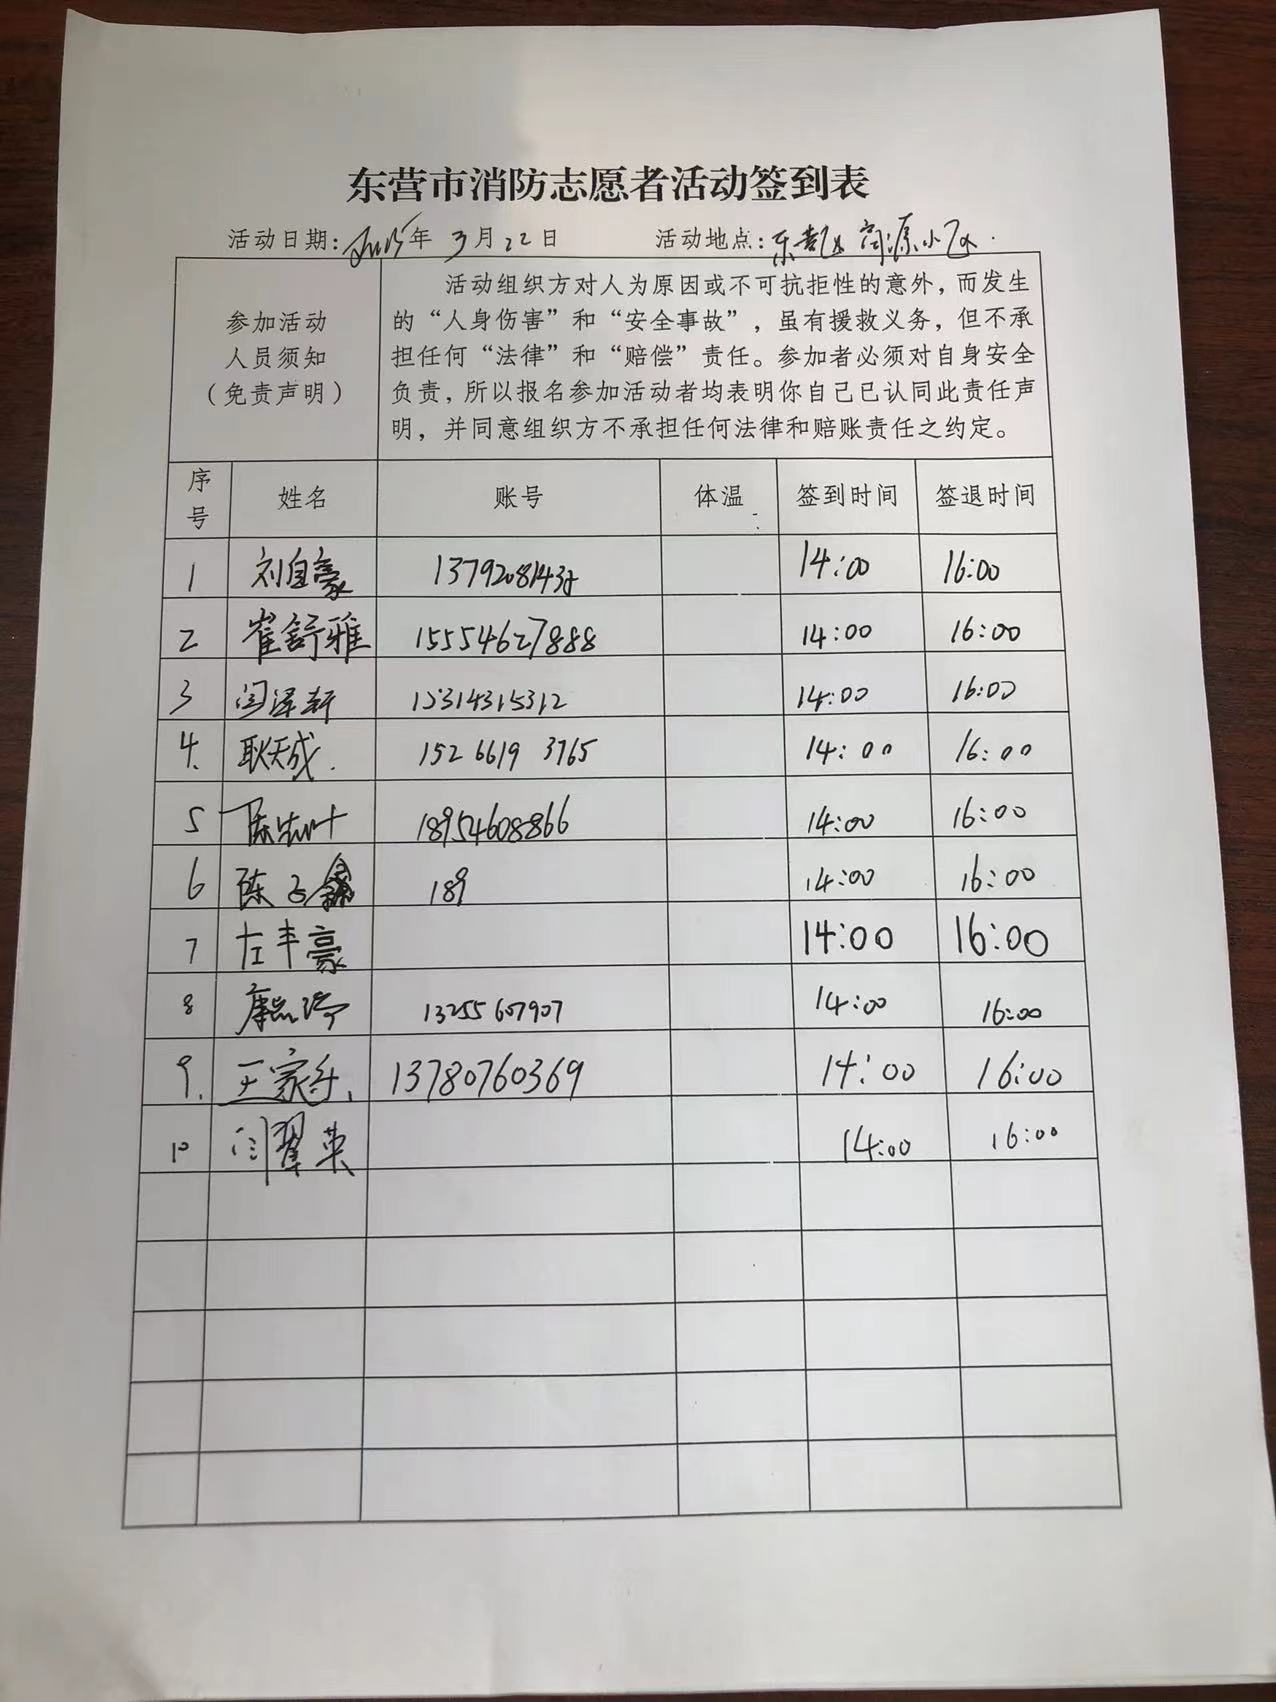 东营市消防志愿者活动签到表
活动日期：2025年 3月22日 活动地点：东营区 小区.
参加活动
人员须知
（免责声明）
活动组织方对人为原因或不可抗拒性的意外，而发生
的“人身伤害”和“安全事故”，虽有援救义务，但不承
担任何“法律”和“赔偿”责任。参加者必须对自身安全
负责，所以报名参加活动者均表明你自己已认同此责任声
明，并同意组织方不承担任何法律和赔账责任之约定。
序号 姓名 账号 体温 签到时间 签退时间
1 刘自豪 14:00 16:00
2 崔舒雅 15554627888 14:00 16:00
3 闫泽轩 14:00 16:00
4. 耿天成. 152 6619 3765 14:00 16:00
5 陈 18954608866 14:00 16:00
6 陈 189 14:00 16:00
7 左丰豪 14:00 16:00
8 康 13255607907 14:00 16:00
9. 王家乐. 13780760369 14:00 16:00
10 闫翠英 14:00 16:00